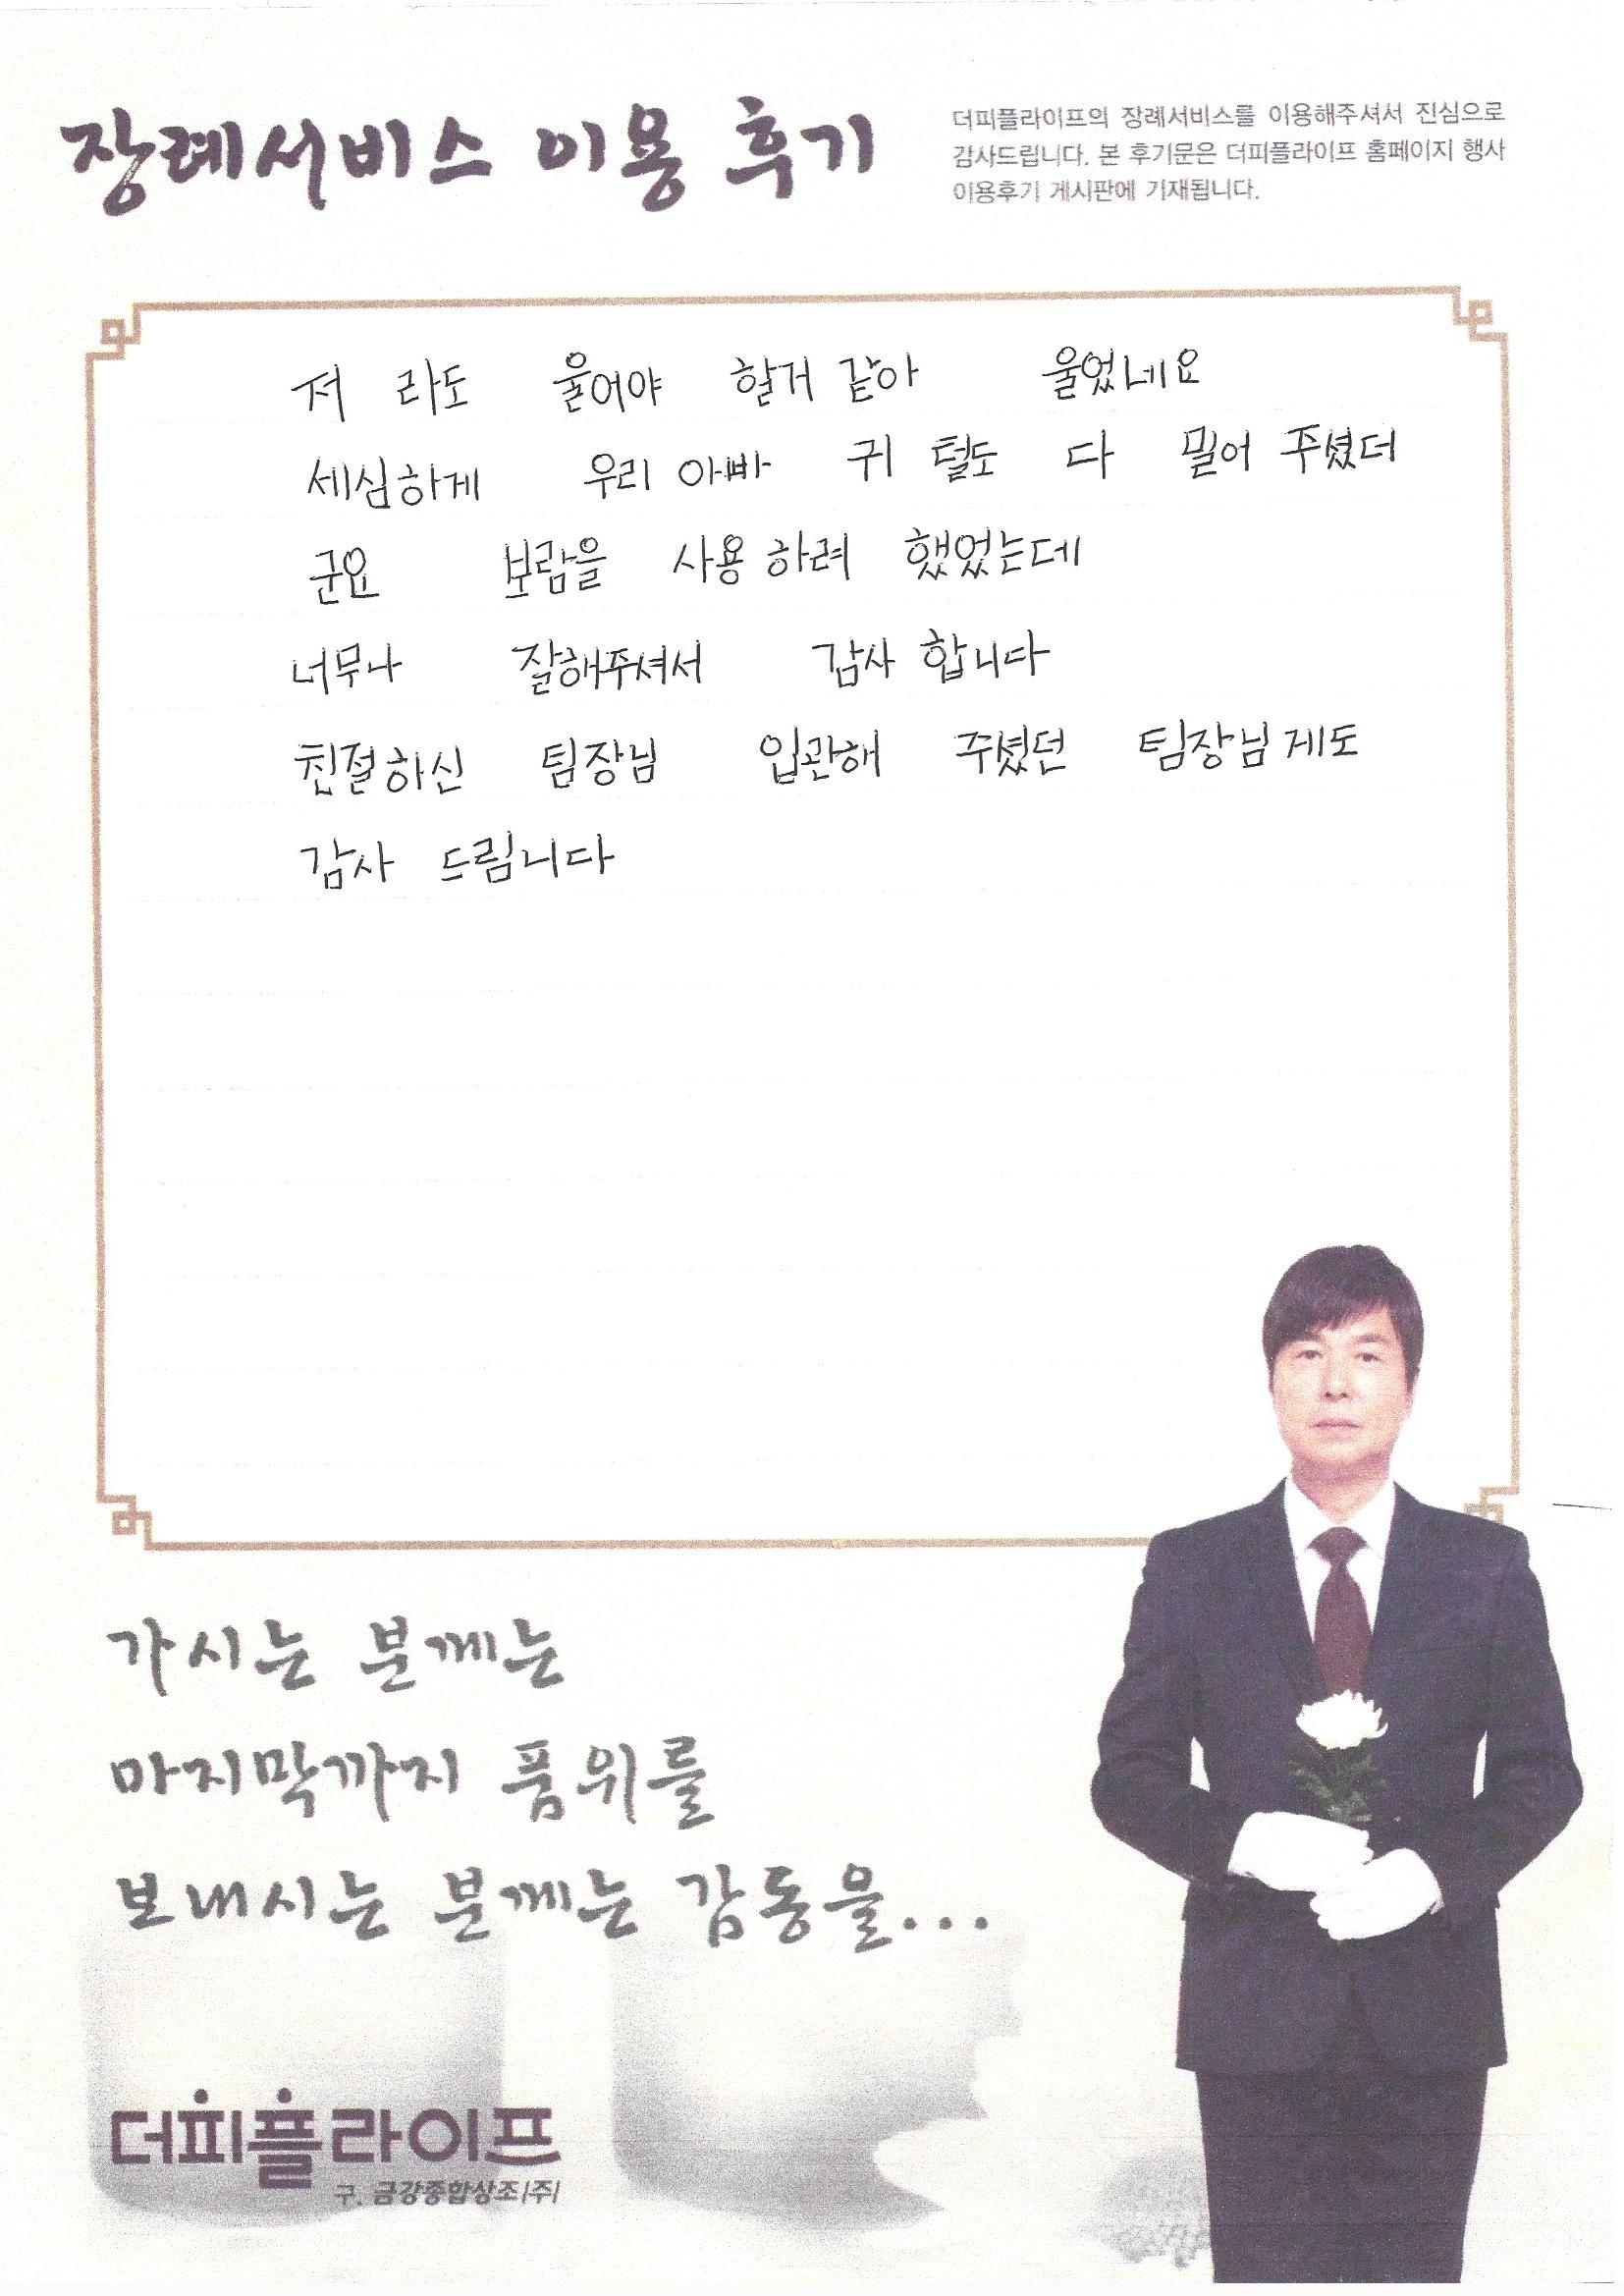 장례서비스 이용 후기
더피플라이프의 장례서비스를 이용해주셔서 진심으로
감사드립니다. 본 후기문은 더피플라이프 홈페이지 행사
이용후기 게시판에 기재됩니다.
저 라도 울어야 할거 같아 울었네요
세심하게 우리 아빠 귀 털도 다 밀어 주셨더
군요 보람을 사용 하려 했었는데
너무나 잘해주셔서 감사 합니다
친절하신 팀장님 입관해 주셨던 팀장님 게도
감사 드림니다
가시는 분께는
마지막까지 품위를
보내시는 분께는 감동을...
더피플라이프
구. 금강종합상조(주)